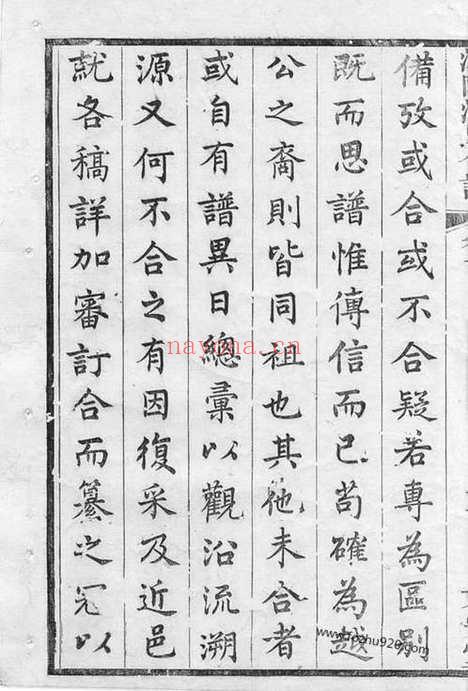 備攷或合或不合疑若專為區別
既而思譜惟傳信而已苟確為越
公之裔則皆同祖也其他未合者
或自有譜異日總彙以觀沿流溯
源又何不合之有因復采及近邑
就各稿詳加審訂合而纂之冠以
nayona.cn
www.fozhu920.com